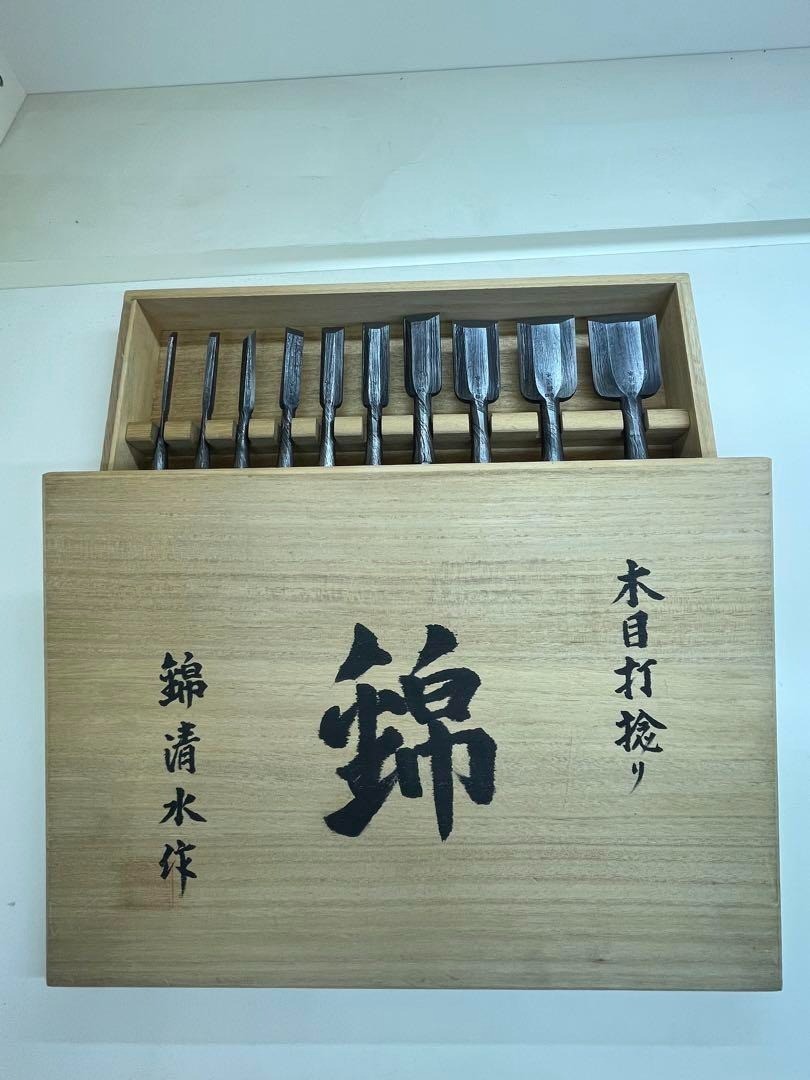 木目打捻り
錦
錦清水作